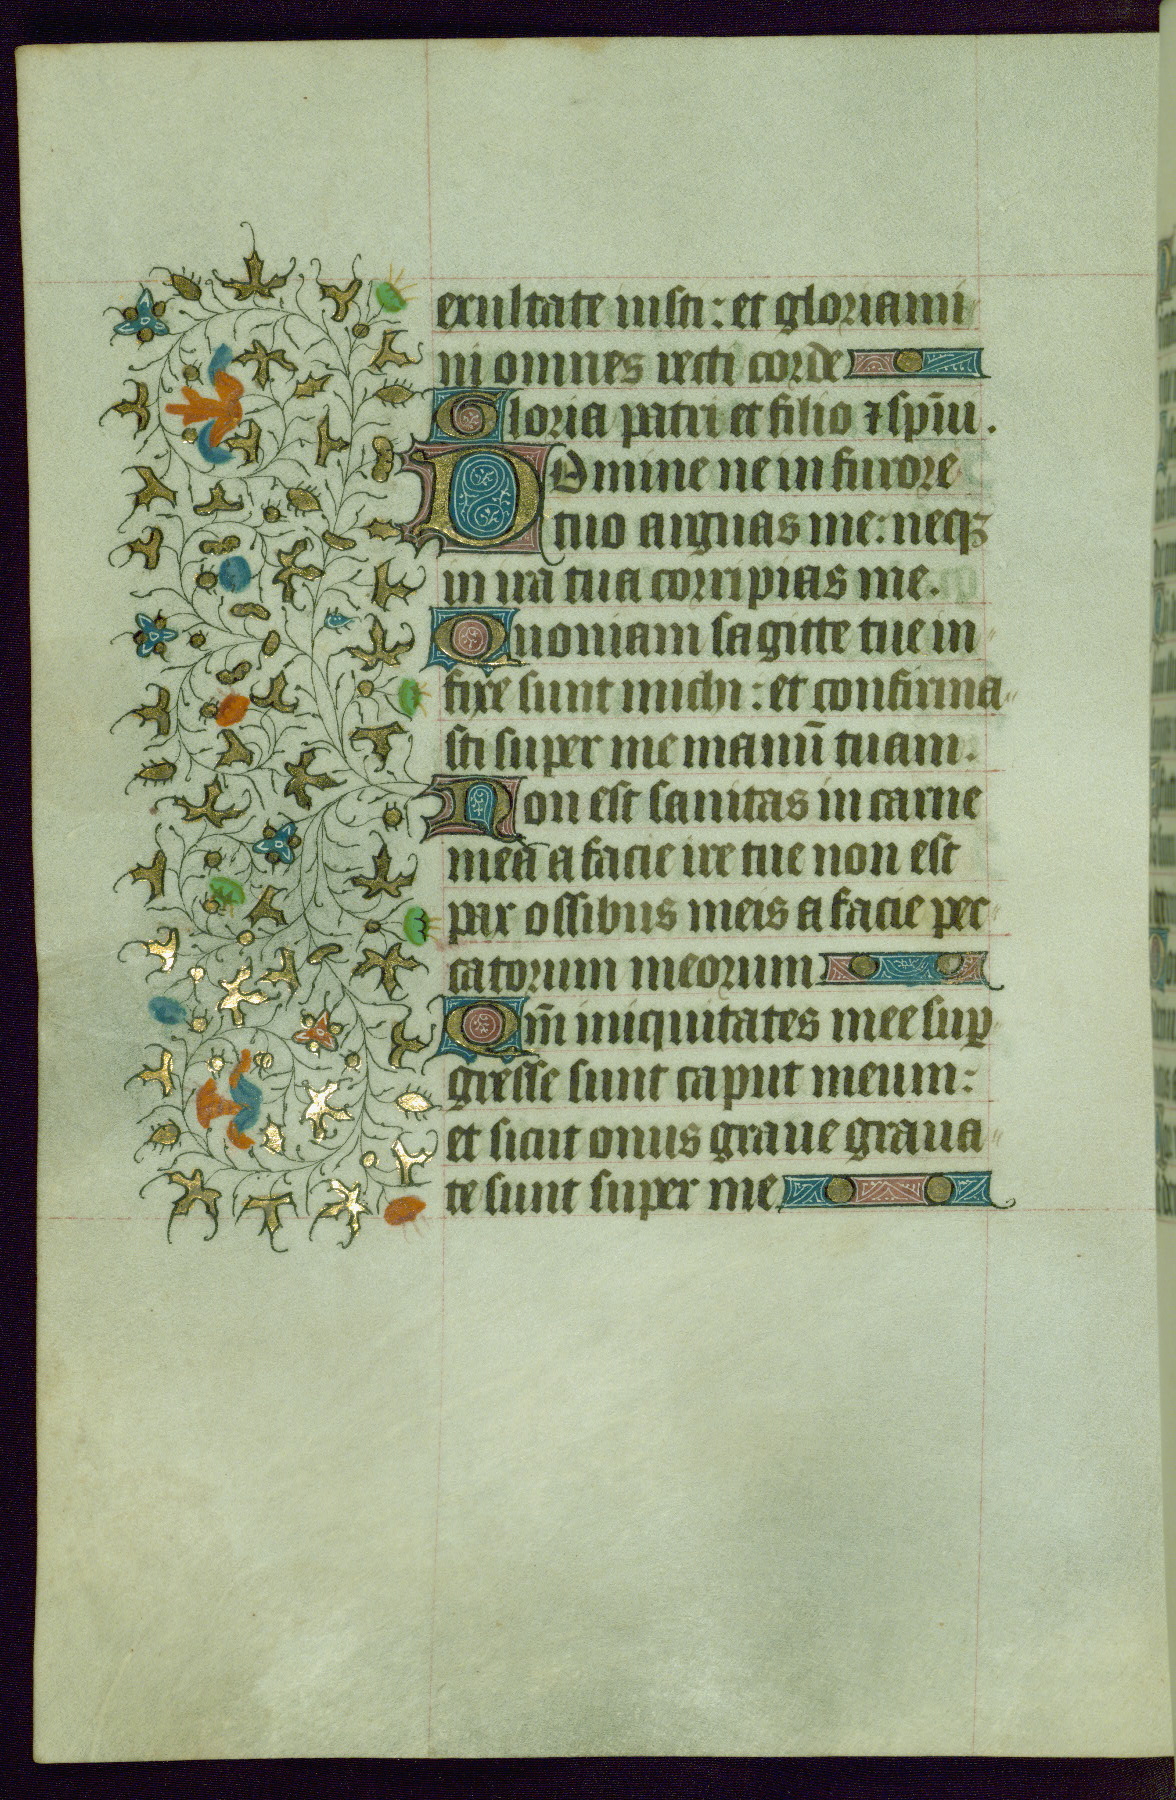 exultate iusti: et gloriami
ni omnes recti corde
Gloria patri et filio ⁊ sp̄iu.
Domine ne in furore
tuo arguas me: neqꝫ
in ira tua corripias me.
Quoniam sagitte tue in
fixe sunt michi: et confirma
sti super me manū tuam.
Non est sanitas in carne
mea a facie ire tue non est
pax ossibus meis a facie pec
catorum meorum
Qm̄ iniquitates mee sup̱
gresse sunt caput meum:
et sicut onus graue graua
te sunt super me